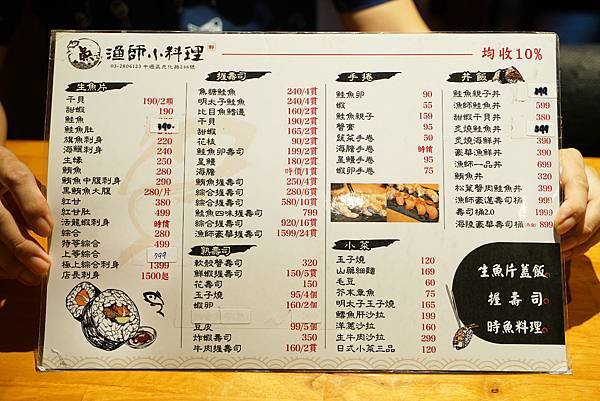 漁師小料理
03-2804123 中壢區光化路296號
均收10%
生魚片
干貝 190/2顆
甜蝦 190
鮭魚 190.
鮭魚肚
旗魚刺身 220
海鱺刺身 240
生蠔 250
鮪魚 280
鮪魚中腹刺身 290
黑鮪魚大腹 280/片
紅甘 380
紅甘肚 499
活龍蝦刺身 時價
綜合 280
特等綜合 499
上等綜合 799
極上綜合刺身 1399
店長刺身 1500起
握壽司
魚鰭鮭魚 240/4貫
明太子鮭魚 240/4貫
比目魚鰭邊 160/2貫
干貝 190/2貫
甜蝦 165/2貫
花枝 90/2貫
鮭魚卵壽司 199/2貫
星鰻 180/2貫
海膽 時價/1貫
鮪魚綜合壽司 250/4貫
鮭魚握壽司 280/4貫
綜合握壽司 580/10貫
鮭魚四味握壽司 799
綜合握壽司 920/16貫
漁師豪華握壽司 1599/24貫
熟壽司
軟殼蟹壽司 320
鮮蝦握壽司 150/5貫
花壽司 150
玉子燒 95/4個
蝦卵 160/2個
豆皮 99/5個
炸蝦壽司 350
牛肉握壽司 160/2貫
手捲
鮭魚卵 90
蝦 55
鮭魚親子 159
蟹膏 95
蔬菜手卷 50
海膽手卷 時價
星鰻手卷 95
蝦卵手卷 75
小菜
玉子燒 120
山藥細麵 169
毛豆 60
芥末章魚 75
明太子玉子燒 165
鱈魚肝沙拉 199
洋蔥沙拉 160
生牛肉沙拉 299
日式小菜三品 120
丼飯
鮭魚親子丼 399
漁師鮭魚丼 599
甜蝦干貝丼 380
炙燒鮭魚丼 399
炙燒海鮮丼 390
豪華漁鮮丼 450
漁師一品丼 699
鮪魚丼 320
松葉蟹肉鮭魚丼 399
漁師豪邁壽司桶 999
壽司桶2.0 1999
海陵豪華壽司桶 899
生魚片蓋飯
握壽司
時魚料理